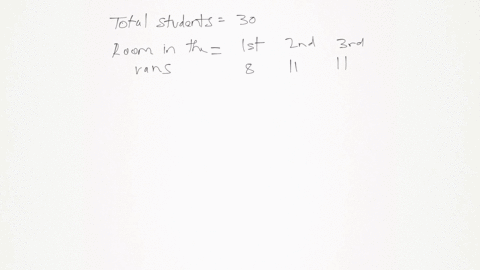 Total students = 30
Room in the = 1st 2nd 3rd
vans 8 11 11